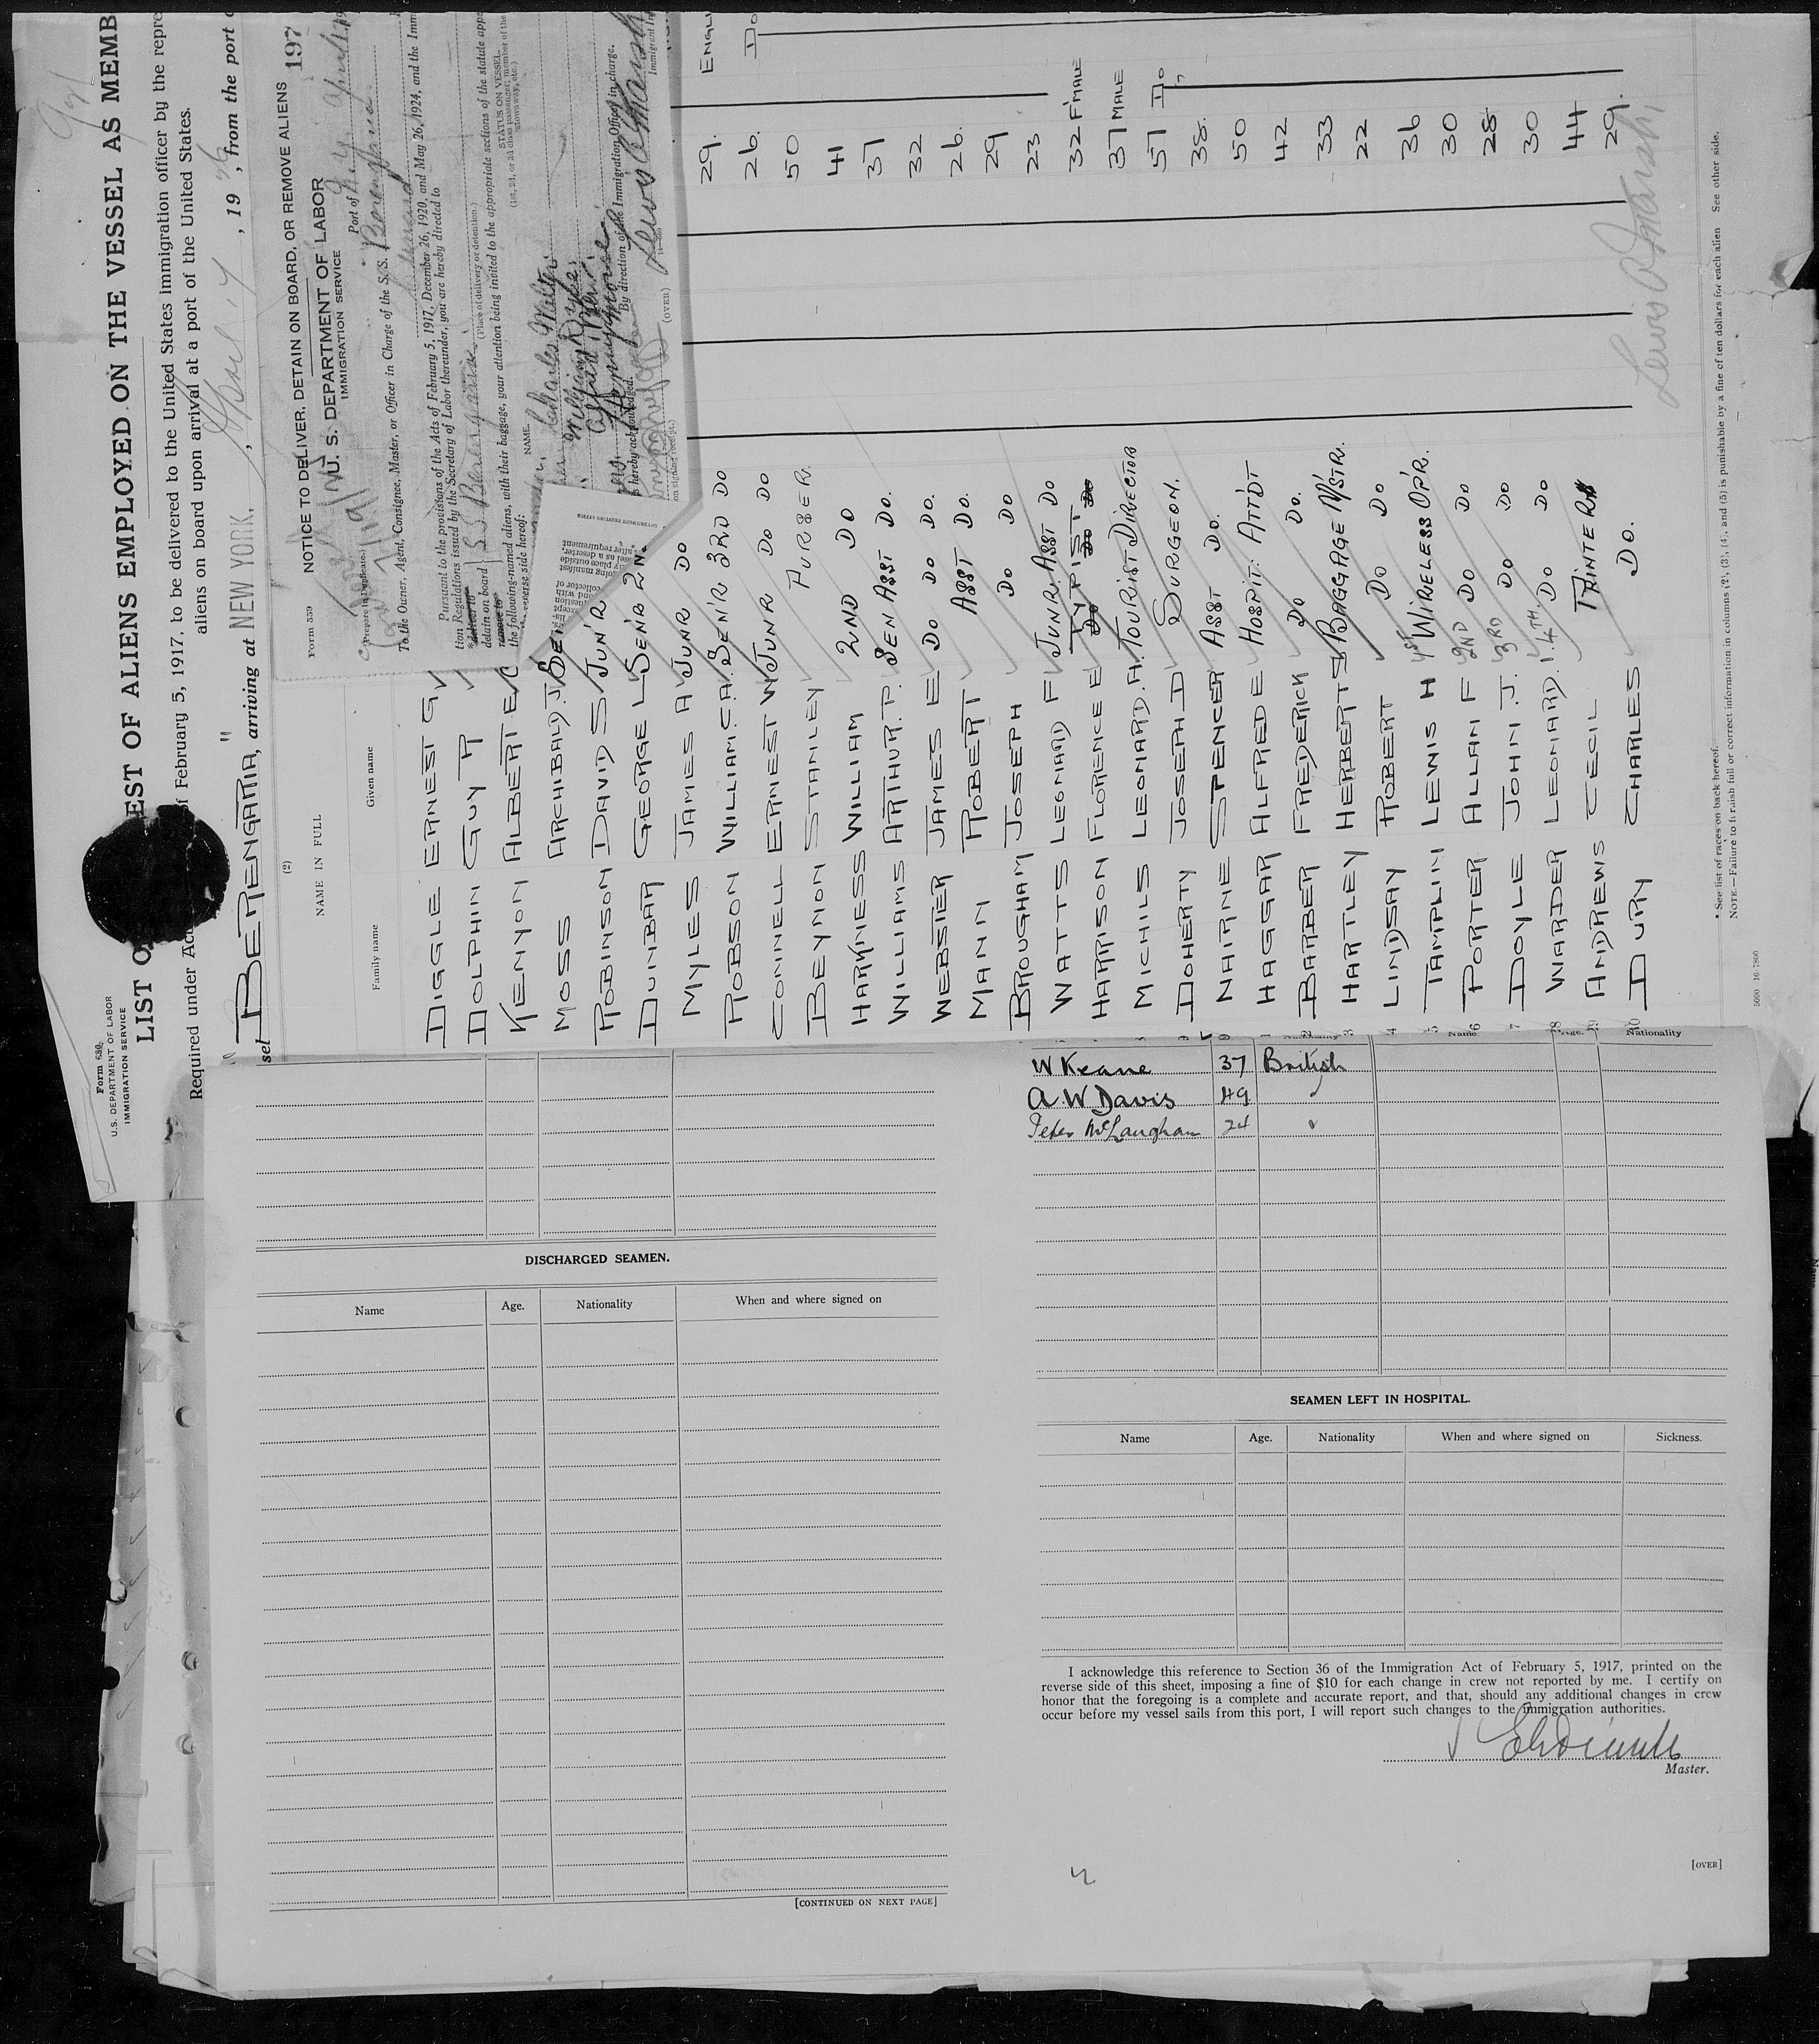 Form 680
U.S. DEPARTMENT OF LABOR
IMMIGRATION SERVICE
LIST O EST OF ALIENS EMPLOYED ON THE VESSEL AS MEMB
Required under Ac f February 5, 1917, to be delivered to the United States immigration officer by the repre
aliens on board upon arrival at a port of the United States.
sel BERENGARIA", arriving at NEW YORK. , 19 , from the port
(2)
NAME IN FULL
Family name Given name
DIGGLE ERNEST G
DOLPHIN GUY R
KENYON ALBERT E
MOSS ARCHIBALD. J
ROBINSON DAVID S JUN'R
DUNBAR GEORGE L SEN'R 2N.
MYLES JAMES A JUNR DO 29.
ROBSON WILLIAM. C.A. SEN'R 3RD DO 26.
CONNELL ERNEST W JUNR DO DO 50
BEYNON STANLEY PURSER. 41
HARKNESS WILLIAM 2ND DO 37
WILLIAMS ARTHUR. P. SEN ASST DO. 32
WEBSTER JAMES E DO DO DO. 26.
MANN ROBERT ASST DO. 29
BROUGHAM JOSEPH DO DO 23
WATTS LEONARD F JUNR. ASST DO 32 F'MALE
HARRISON FLORENCE E TYPIST 37 MALE
MICHILS LEONARD. A. TOURIST DIRECTOR 57 Do
DOHERTY JOSEPH. D SURGEON. 38.
NAIRNE SPENCER ASST DO. 50
HAGGAR ALFRED E HOSPIT: ATT'DT 42
BARBER FREDERICK DO DO. 33
HARTLEY HERBERT S BAGGAGE M/STR. 22
LINDSAY ROBERT DO DO 36
TAMPLIN LEWIS H 1ST WIRELESS OP'R. 30
PORTER ALLAN F 2ND DO DO 28
DOYLE JOHN J. 3RD DO DO 30
WARDER LEONARD. 4TH. DO DO 44
ANDREWS CECIL PRINTER 29.
DURY CHARLES DO.
ENGLI
Do
Lewis A Marsh
* See list of races on back hereof.
NOTE.—Failure to furnish full or correct information in columns (2), (3), (4), and (5) is punishable by a fine of ten dollars for each alien See other side.
5000 16 7800
Form 559
NOTICE TO DELIVER, DETAIN ON BOARD, OR REMOVE ALIENS 197
U. S. DEPARTMENT OF LABOR
IMMIGRATION SERVICE
(Prepare in duplicate.)
Port of N. Y.
To the Owner, Agent, Consignee, Master, or Officer in Charge of the S. S. Berengaria
Pursuant to the provisions of the Acts of February 5, 1917, December 26, 1920, and May 26, 1924, and the Imm
tion Regulations issued by the Secretary of Labor thereunder, you are hereby directed to
deliver to
detain on board S.S. Berengaria
remove to
(Place of delivery or detention.)
the following-named aliens, with their baggage, your attention being invited to the appropriate sections of the statute appe
reverse side hereof:
NAME. STATUS ON VESSEL
(1st, 2d, or 3d class passenger, member of the
stowaway, etc.)
Charles
William
hereby acknowledged. By direction of the Immigration Officer in charge.
Lewis A Marsh
(OVER)
W Keane 37 British
A. W Davis 49 "
Peter McLaughan 24 "
DISCHARGED SEAMEN.
Name Age. Nationality When and where signed on
[CONTINUED ON NEXT PAGE]
SEAMEN LEFT IN HOSPITAL.
Name Age. Nationality When and where signed on Sickness.
I acknowledge this reference to Section 36 of the Immigration Act of February 5, 1917, printed on the
reverse side of this sheet, imposing a fine of $10 for each change in crew not reported by me. I certify on
honor that the foregoing is a complete and accurate report, and that, should any additional changes in crew
occur before my vessel sails from this port, I will report such changes to the immigration authorities.
Master.
[OVER]